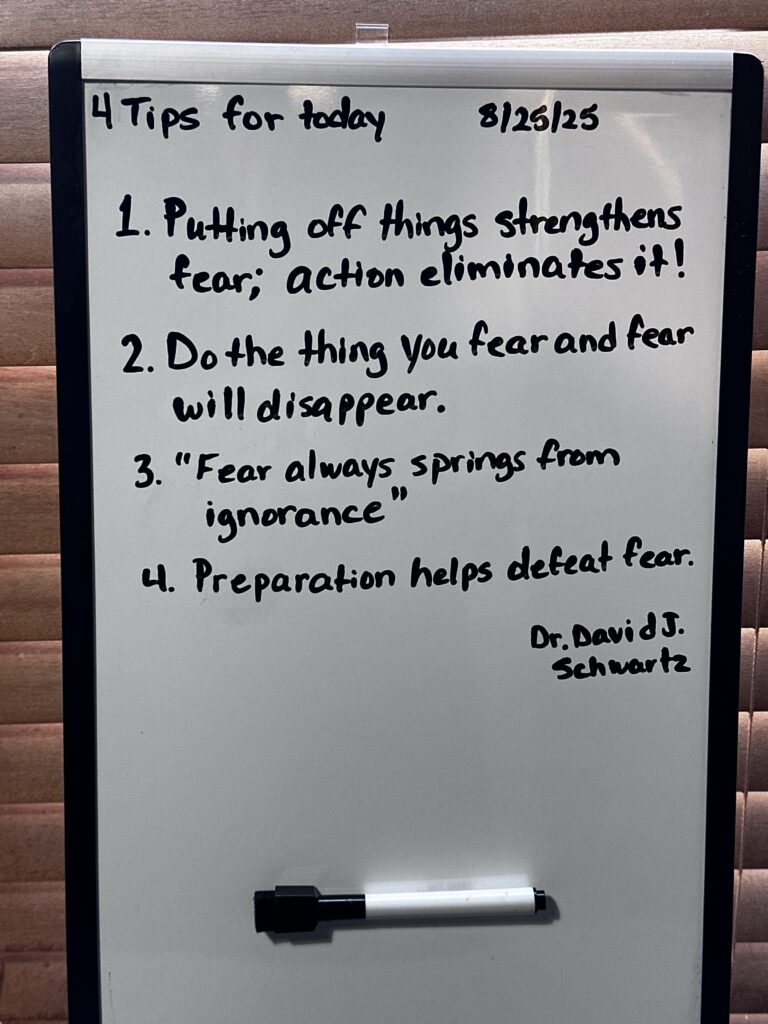 4 Tips for today 8/25/25
1. Putting off things strengthens
fear; action eliminates it!
2. Do the thing you fear and fear
will disappear.
3. "Fear always springs from
ignorance"
4. Preparation helps defeat fear.
Dr. David J.
Schwartz